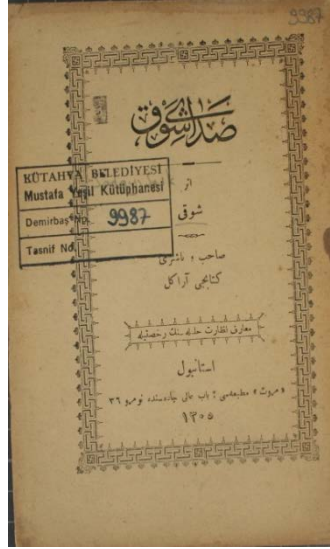 9987
صداى شوق
KÜTAHYA BELEDİYESİ
Mustafa Yeşil Kütüphanesi
Demirbaş No. 9987
Tasnif No.
از
شوقى
صاحب و ناشرى
كتابجى آراكل
معارف نظارت جليله سنك رخصتيله
استانبول
« مروت » مطبعه‌سى ؛ باب عالى جاده‌سنده نومرو ٣٦
١٣٠٥